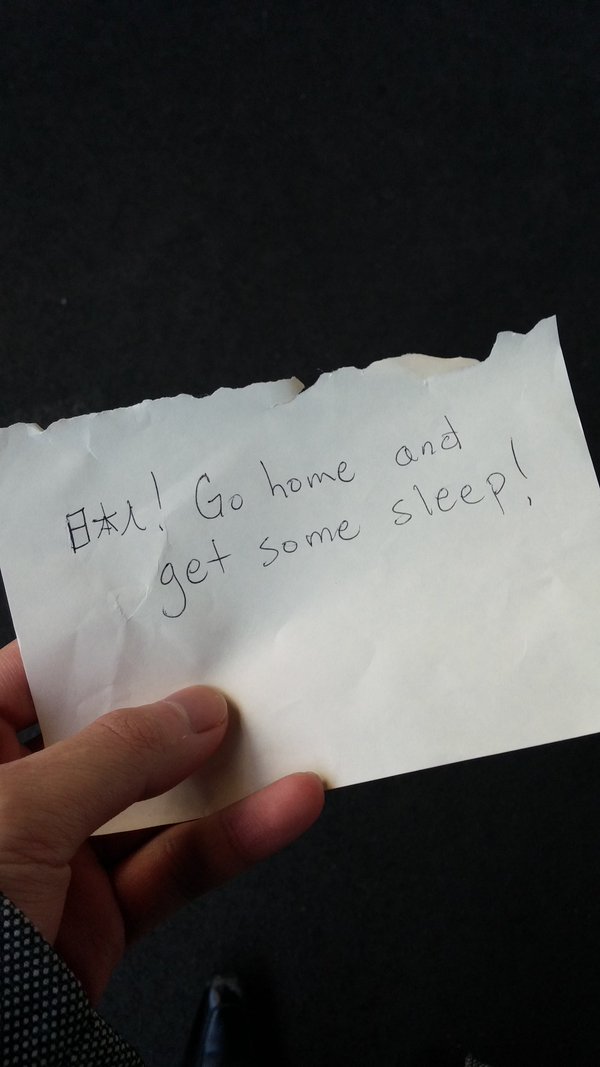 日本人! Go home and
get some sleep!